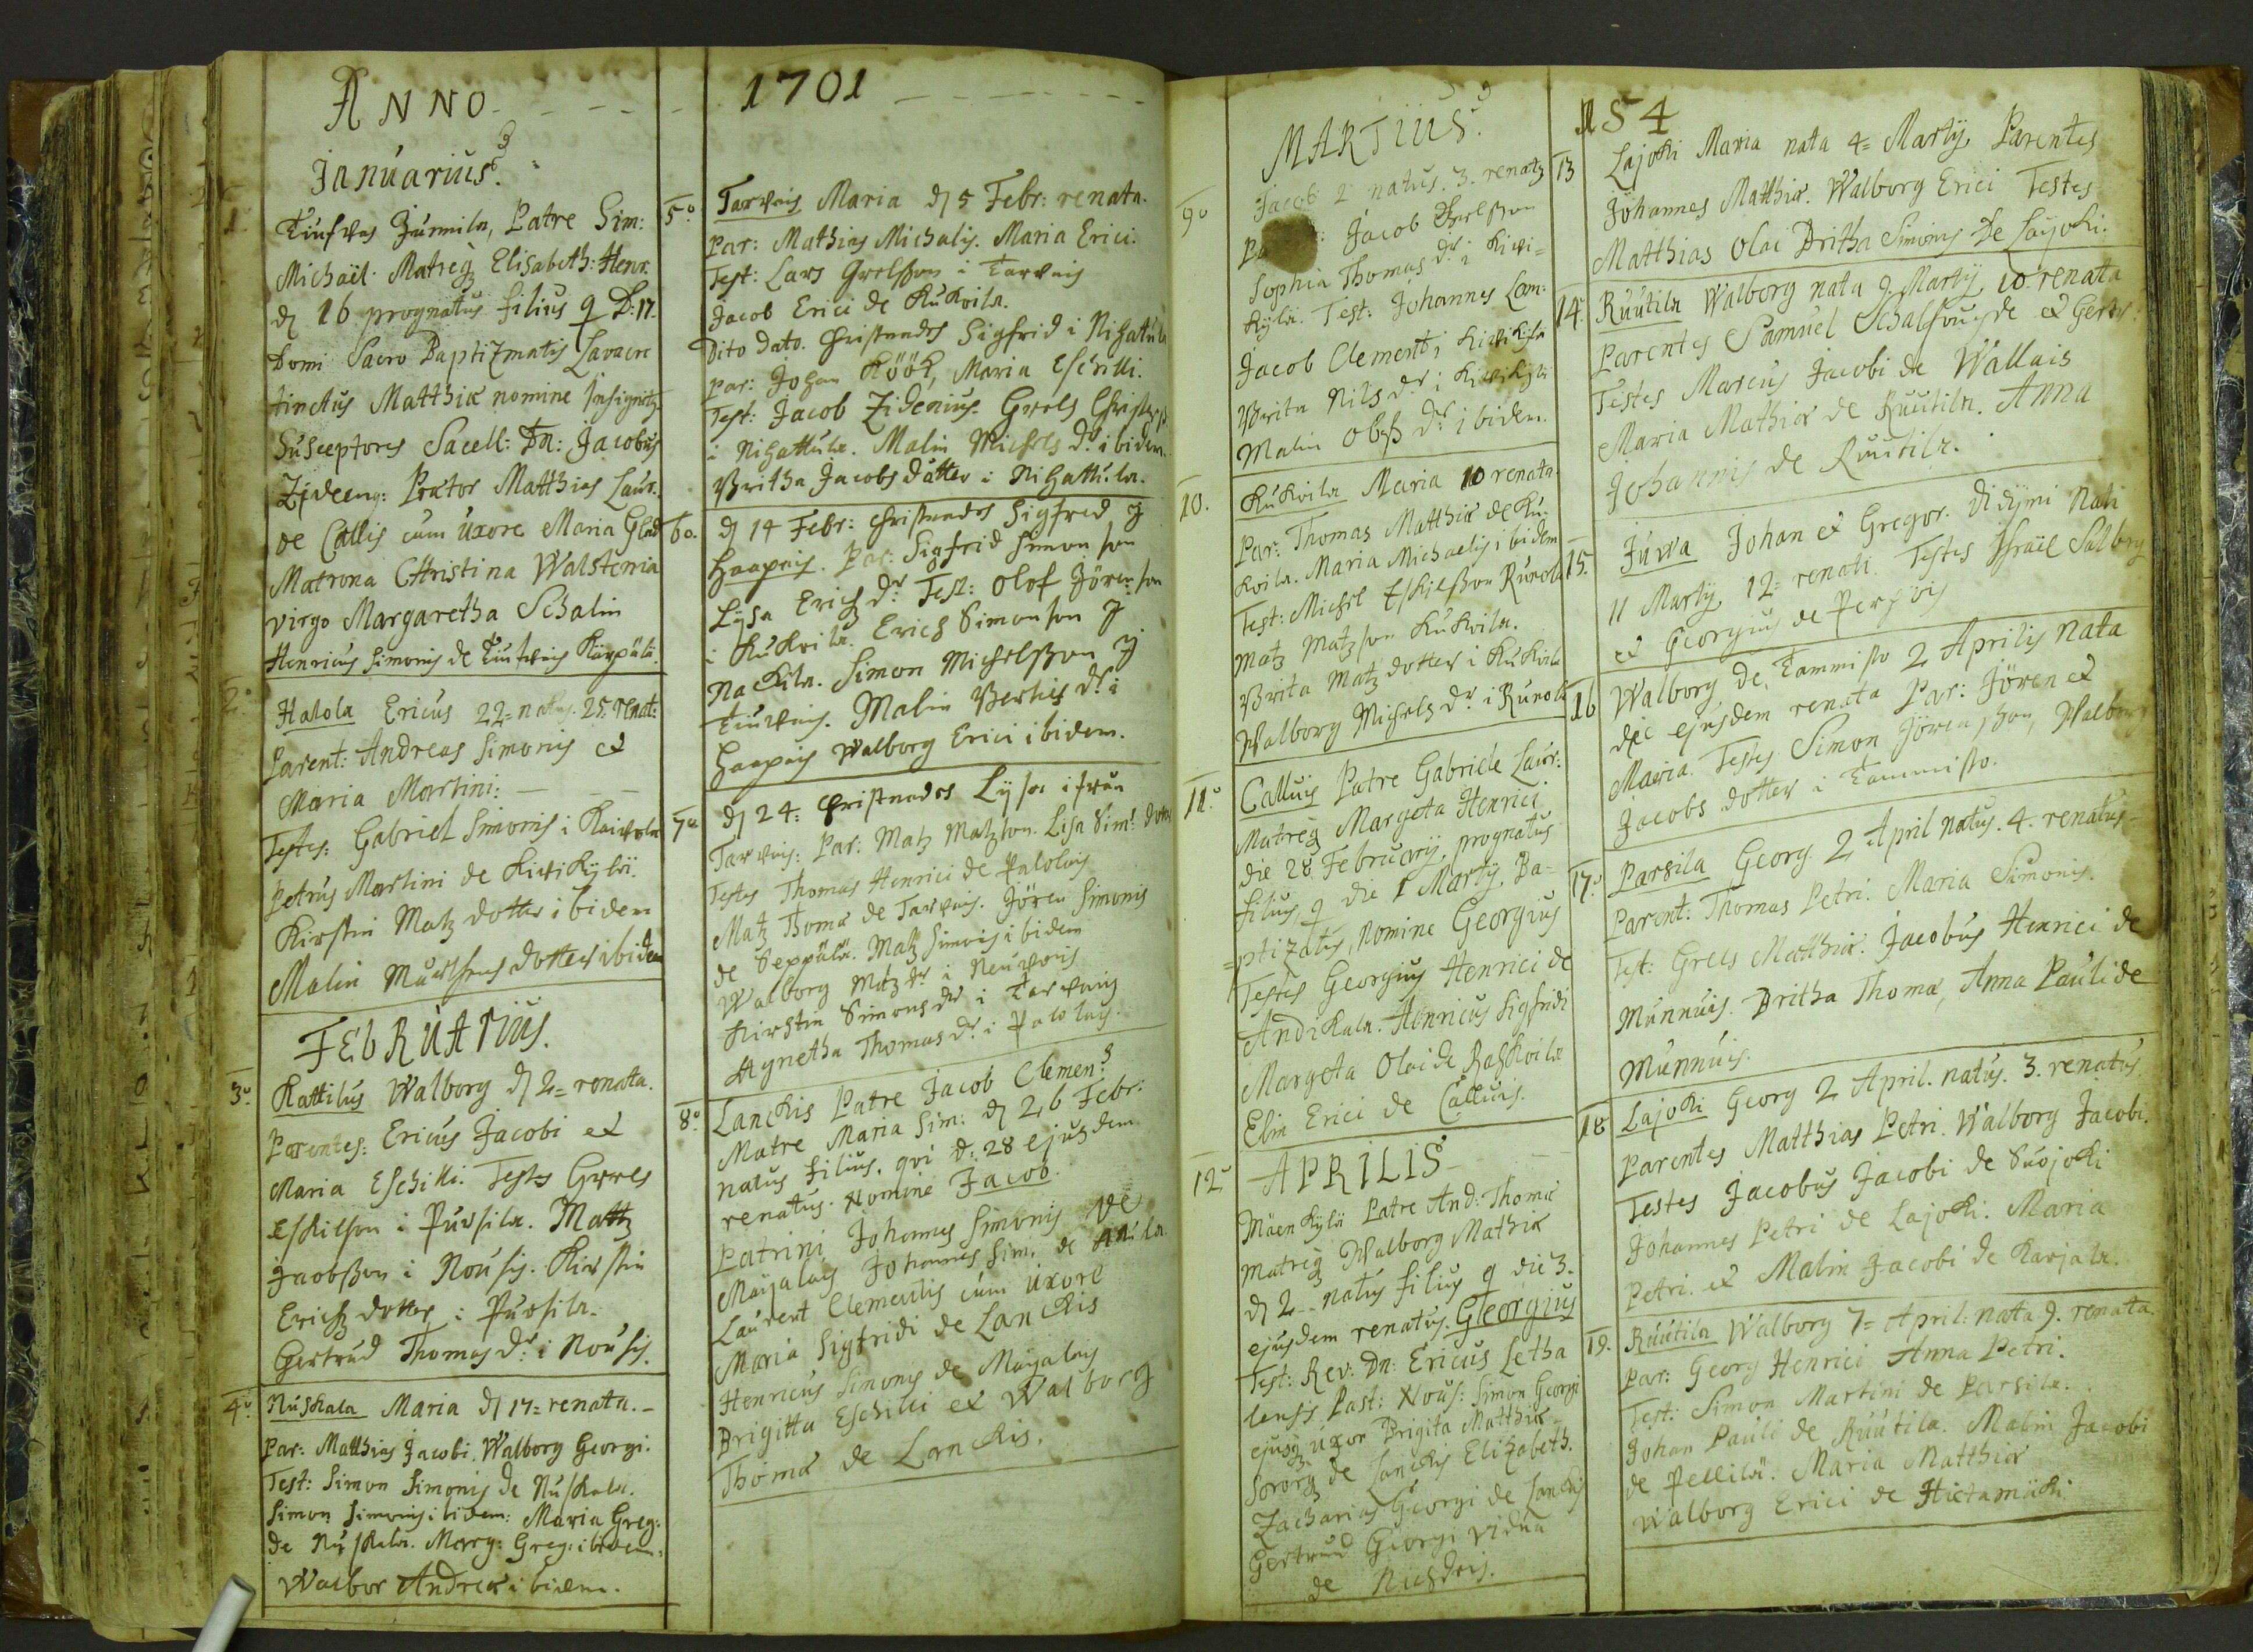 ANNO
Januarius.
1.o
Tiufvas Junnila, Patre Sim:
Michaël. Matreq Elisabeth: Henr.
d 16 prognatus filius q D: 17.
Domi Sacro Baptizmatis Lavacro
tinctus Matthiæ nomine Insignitq
Susceptores Sacell: Dn: Jacobus
Zideeng: Prætor Matthias Laur.
de Callis cum uxore Maria Glad
Matrona Christina Walstenia
virgo Margaretha Schalin
Henricus Simonis de Tiufvais Kärpälä.
2.o
Halola Ericus 22= natus. 25. renat:
Parent: Andreas Simonis et
Maria Martini:
Testes: Gabriel Simonis i Kaivola
Petrus Martini de Kivikylä.
Kirstin Matz dotter ibidem
Malin dotter ibidem
FEBRUARIUS.
3.o
Kattilus Walborg d 2= renata.
Parentes: Ericus Jacobi et
Maria Eschilli. Testes Grels
Eskilson i Pursila. Mattz
Jacobsson i Nousis. Kirstin
Erichz dotter i Pursila.
Gertrud Thomas dr i Nousis.
4.o
Nuskala Maria d 17= renata.
Par: Matthias Jacobi. Walborg Georgi.
Test: Simon Simonis de Nuskala.
Simon Simonis ibidem: Maria Greg:
de Nuskala. Marg: Greg: ibidem.
Walbor Andreæ ibidem.
1701
5.o
Tarvais Maria d 5 Febr: renata.
Par: Mathias Michalis. Maria Erici.
Test: Lars Grelsson i Tarvais
Jacob Erici de Kukoila.
Dito dato. Christnades Sigfrid i Nihatula
par: Johan Köök, Maria Eschilli.
Test: Jacob Zidenius. Grels
i Nihattula. Malin Michels dr. ibidem.
Britha Jacobs dutter i Nihattula.
6o.
d 14 Febr: christnades Sigfred J
Haapais. Par: Sigfrid Simonson
Lysa Erichz dr Test: Olof Jöranson
i Kukoila. Erich Simonson J
Nackila. Simon Michelsson J
Tiuvais. Malin Bertils dr i
Haapais Walborg Erici ibidem.
7o
d 24= christnades Lysa ifrån
Tarvais: Par: Matz Matzson. Lisa Sim: dotter
Testes Thomas Henrici de Palolais
Matz Thomæ de Tarvais. Jören Simonis
de Seppälä. Matz Simonis ibidem
Walborg Matz dr i Neuvois
Kirstin Simons dr i Tarvais
Agnetha Thomas dr. i Palolais.
8.o
Lanckis Patre Jacob Clemen:
Matre Maria Sim: d 26 Febr:
natus filius, qvi D: 28 ejusdem
renatus. Nomine Jacob.
Patrini Johannes Simonis de
Maijalais Johannes Sim. de
Laurent Clementis cum uxore
Maria Sigfridi de Lanckis
Henricus Simonis de Maijalais
Brigitta Eschilli et Walborg
Thomæ de Lanckis.
MARTIUS.
9o
Jacob 2 natus. 3. renatq
Jacob Grelsson
Sophia Thomas dr i Kivi=
kylä. Test: Johannes Lam.
Jacob Clementi Kivikylä
Brita Nils dr i Kivikylä
Malin Olofs dr ibidem.
10.
Kukoila Maria 10 renata.
Par: Thomas Matthiæ de Ku-
koila. Maria Michaelis ibidem
Test: Michel Eskilsson Runola
Matz Matzson Kukoila.
Brita Matz dotter i Kukoila
Walborg Michels dr i Runola
11.o
Calluis Patre Gabriele Laur:
Matreq Margeta Henrici
die 28 Februarij, prognatus
filius, q die 1 Martij Ba-
=ptizatus, Nomine Georgius
Testes Georgius Henrici de
Andikala. Henricus Sigfridi
Margeta Olai de Raskoila
Elin Erici de Calluis.
APRILIS
12.o
Mäenkylä Patre And: Thomæ
Matreq Walborg Mathiæ
d 2 natus filius q die 3.
ejusdem renatus. Georgius
Test: Rev: Dn: Ericus Letha
lensis Past: Nous: Simon Georgi
ejusq uxor Brigita Matthiæ
Sororq de Lanckis Elizabeth.
Zacharias Georgi de Lanckis
Gertrud Georgi vidua
de
154
13
Lajoki Maria nata 4= Martij. Parentes
Johannes Matthiæ. Walborg Erici Testes
Matthias Olai Britha Simonis de Lajoki.
14.
Ruutila Walborg nata 9 Martij 10. renata
Parentes Samuel et Gertr:
Testes Marcus Jacobi de Wallais
Maria Mathiæ de Ruutila. Anna
Johannis de Ruutila.
15.
Juva Johan et Gregor. didymi Nati
11 Martij. 12= renati. Testes Israel Salberg
et Georgius de
16
Walborg de Tammisto 2 Aprilis Nata
die ejusdem renata Par: Jören et
Maria. Testes Simon Jöransson, Walborg
Jacobs dotter i Tammisto.
17.o
Parsila Georg 2 April natus. 4. renatus
Parent: Thomas Petri. Maria Simonis.
Test: Grels Matthiæ. Jacobus Henrici de
Munnuis. Britha Thomæ, Anna Pauli de
Munnuis.
18
Lajoki Georg 2 April. natus. 3. renatus.
Parentes Matthias Petri. Walborg Jacobi.
Testes Jacobus Jacobi de Suojoki
Johannes Petri de Lajoki. Maria
Petri. et Malin Jacobi de Karjala.
19.
Ruutila Walborg 7= April: nata 9. renata
Par: Georg Henrici Anna Petri.
Test: Simon Martini de Parsila.
Johan Pauli de Ruutila. Malin Jacobi
de Pellilä. Maria Matthiæ
Walborg Erici de Hietamäki